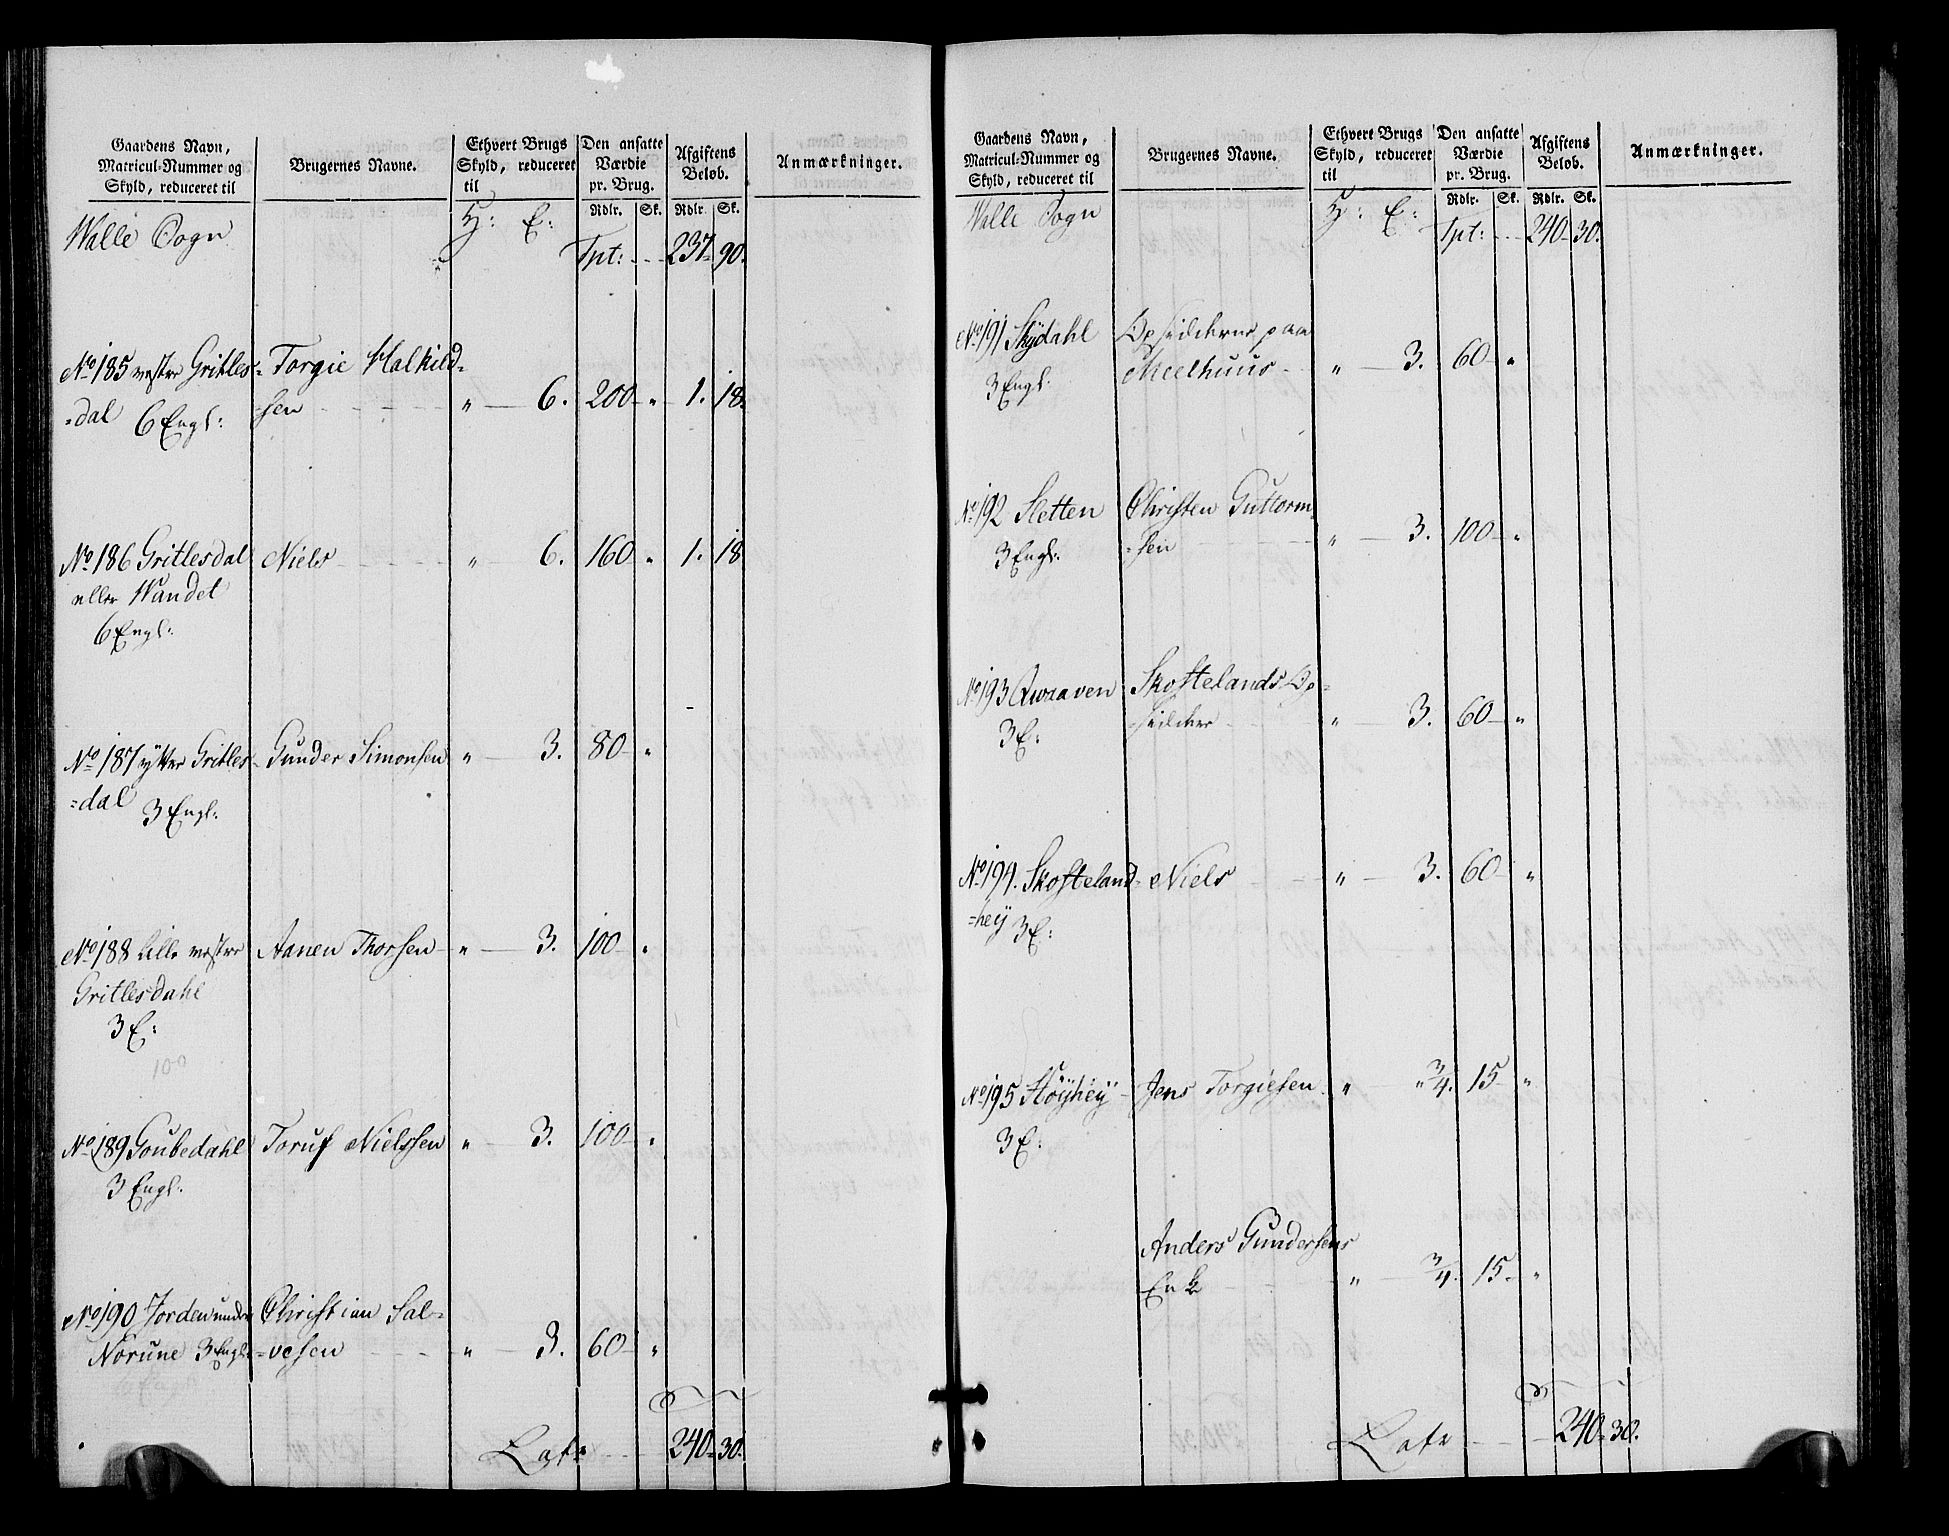 Gaardens Navn, Matricul-Nummer og Skyld, reduceret til
Brugernes Navne.
Ethvert Brugs Skyld, reduceret til
Den ansatte Værdie pr. Brug.
Afgiftens Beløb.
Anmærkninger.
Rdlr. Sk. Rdlr. Sk.
Walle Sogn H: E:
Tpt: 237 90.
No 185 vestre Gritles- Torgie Halkild-
=dal 6 Engl: sen " 6. 200 " 1. 18.
No 186 Gritlesdal Niels " 6. 160 " 1. 18
eller Wandel
6 Engl:
No 187 ytter Gritles- Gunder Simonsen " 3. 80 "
=dal 3 Engl:
No 188 Lille vestre Aanen Thorsen " 3. 100 "
Gritlesdahl
3 E:
100
No 189 Goubedahl Toruf Nielssen " 3. 100 "
3 Engl.
No 190 Jorden under Christian Sal=
Norune 3 Engl: =vesen " 3. 60 "
Late 240 30.
Gaardens Navn, Matricul-Nummer og Skyld, reduceret til
Brugernes Navne.
Ethvert Brugs Skyld, reduceret til
Den ansatte Værdie pr. Brug.
Afgiftens Beløb.
Anmærkninger.
Rdlr. Sk. Rdlr. Sk.
Walle Sogn H: E:
Tpt: 240 30.
No 191 Skydahl Opsidderne paa
3 Engl. Meelhuus " 3. 60 "
No 192 Sletten Christen Guttorm=
3 Engl. =sen " 3. 100 "
No 193 Qwaaven Skoftelands Op=
3 E: =sidder " 3. 60 "
No 194. Skofteland= Niels " 3. 60 "
=hey 3 E:
No 195 Støyhey Jens Torgiesen " " 3/4. 15 "
3 E:
Anders Gundersens
Enke " 3/4. 15 "
Late 240 30.